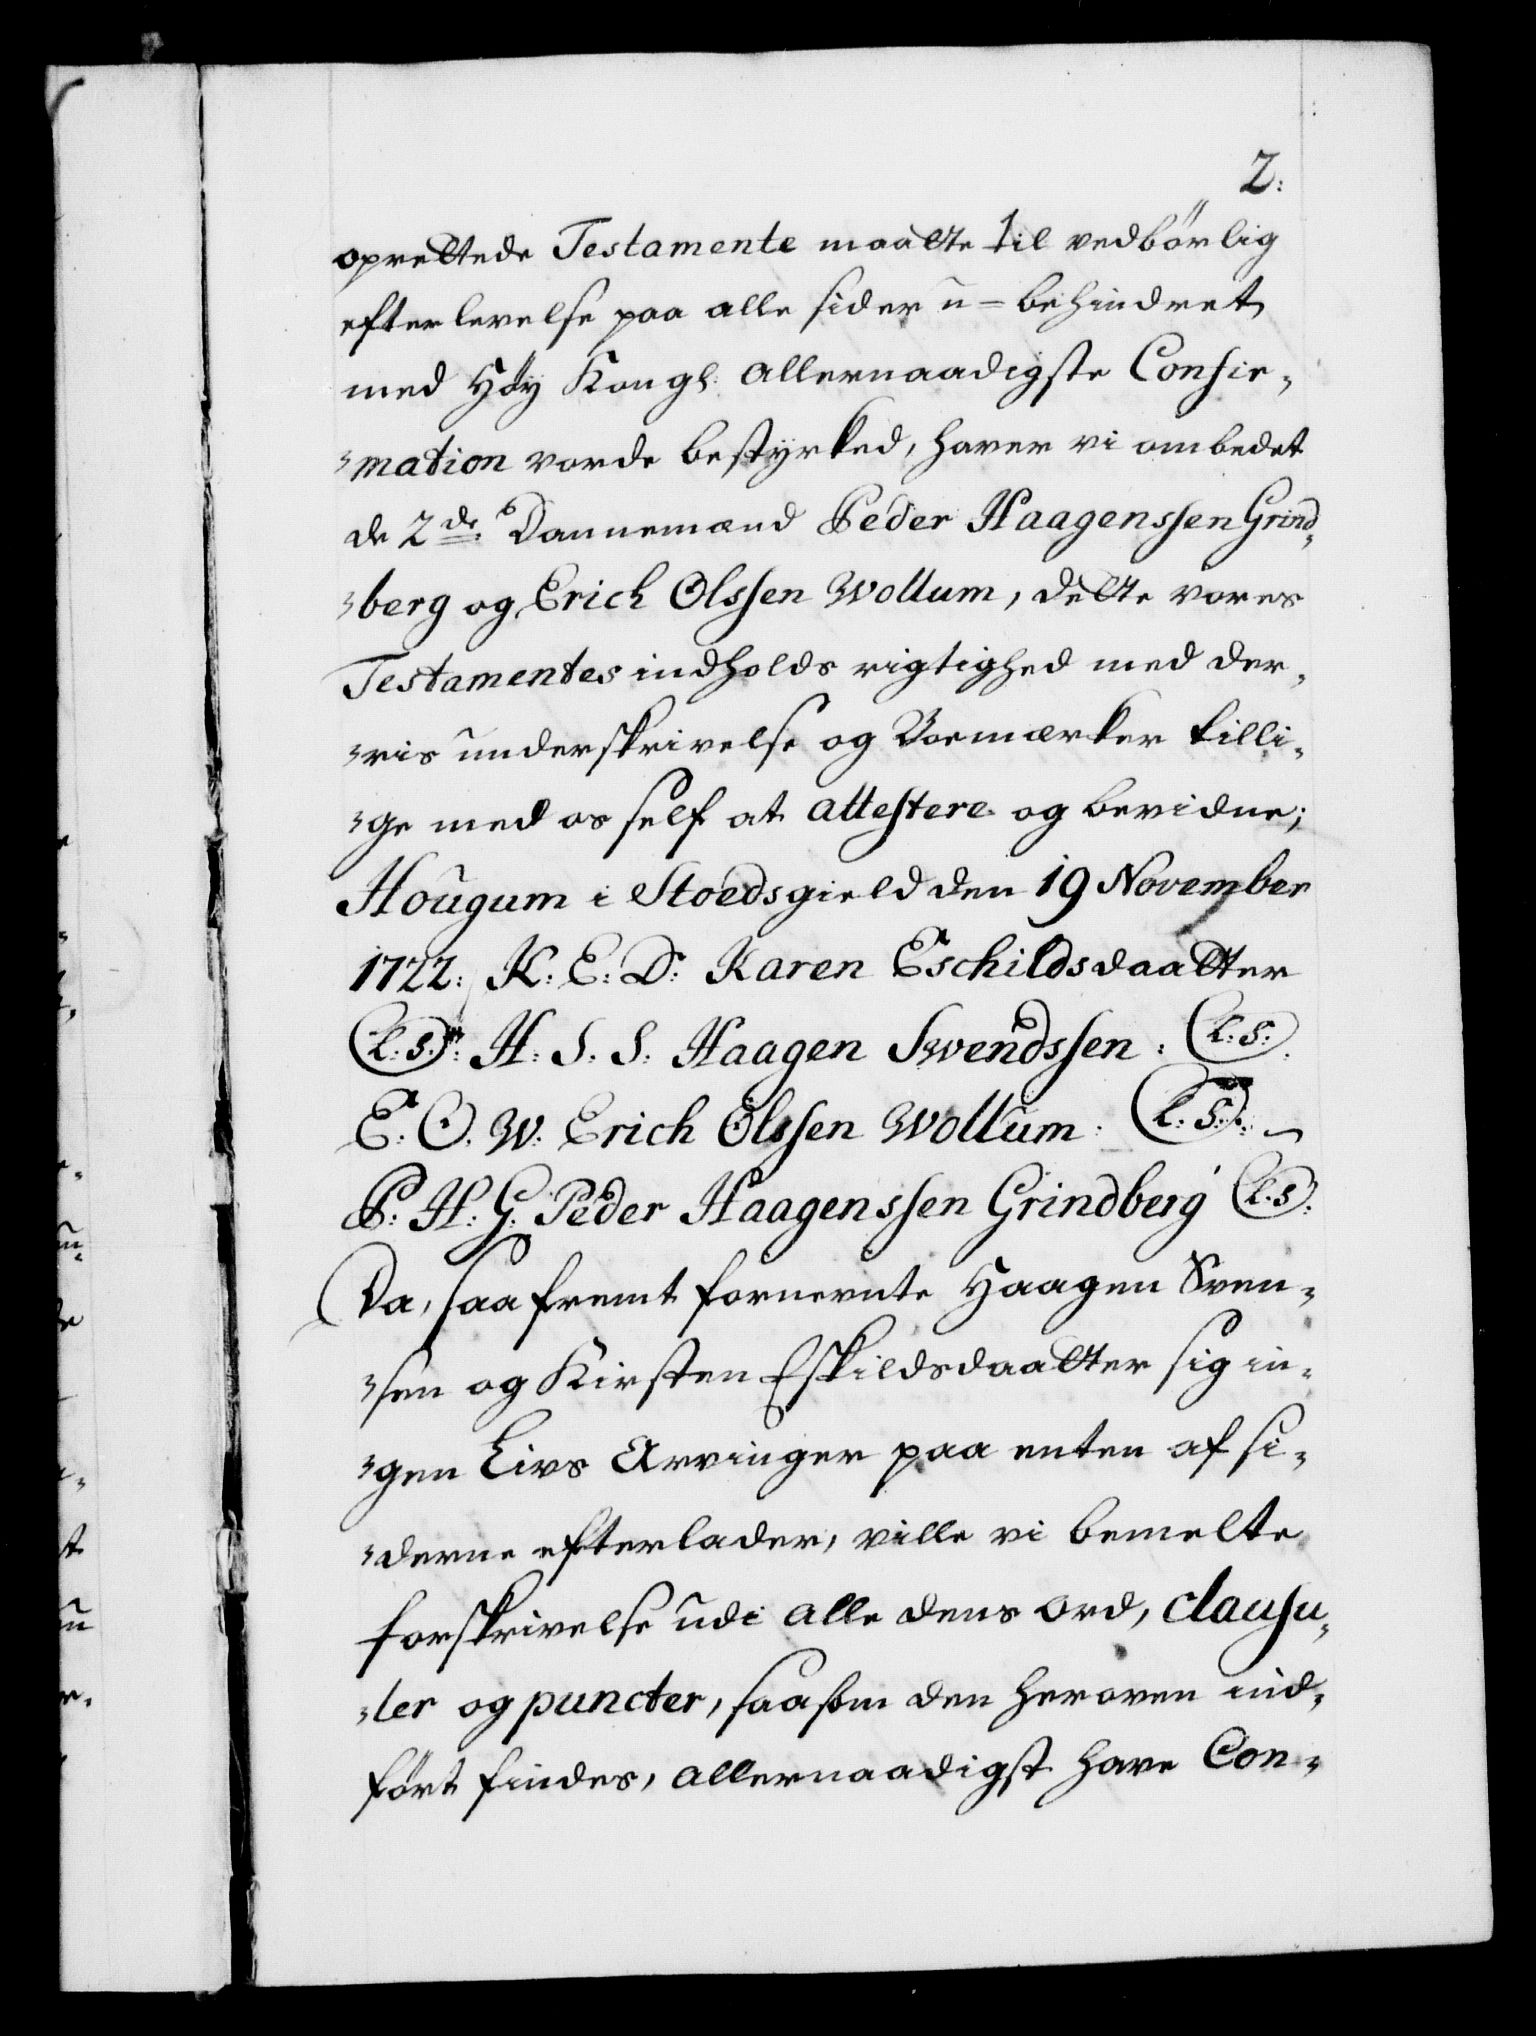 2:
oprettede Testamente maatte til vedbörlig
efterlevelse paa alle sider u=behindret,
med Höy Kongl: allernaadigste Confir„
„mation vorde bestyrked, haver vi ombedet
de 2de Dannemænd Peder Haagenssen Grind„
„berg og Erich Olssen Wollum, dette vores
Testamentes indholds rigtighed med der„
„ris underskrivelse og Boemærker tilli„
„ge med os self at attestere og bevidne;
Hougum i Stoedsgield den 19 November
1722: K: E: D: Karen Eschildsdaatter
(L:S:): H: S. S: Haagen Swendssen: (L:S:).
E: O. W: Erich Olssen Wollum: (L.S:):
P: H: G: Peder Haagenssen Grindberg (L.S):
Da, saafremt fornevnte Haagen Sven„
„sen og Kirsten Eskildsdaatter sig in„
„gen Livs Arvinger paa enten af si„
„derne efterlader, ville vi bemelte
forskrivelse udi alle dens ord, clausu„
„ler og puncter, saasom den heroven ind„
fört findes, allernaadigst have Con„